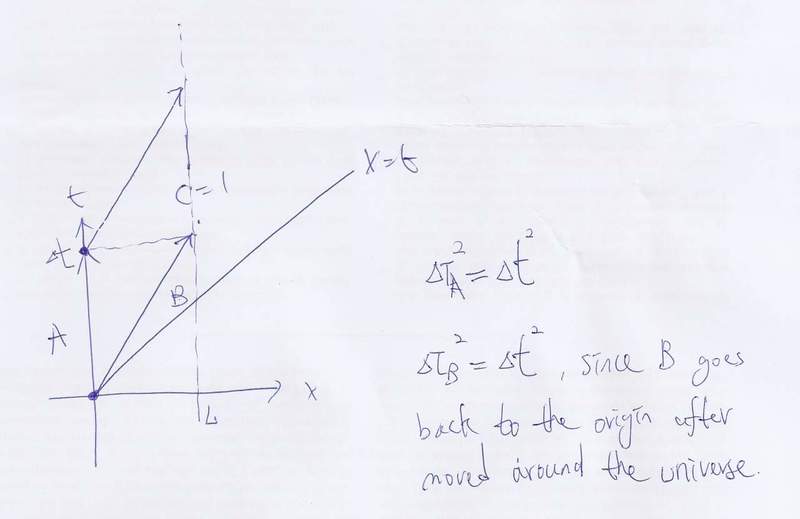 t
C=1
X=t
Δt
B
A
x
L
Δτ_A² = Δt²
Δτ_B² = Δt², since B goes
back to the origin after
moved around the universe.